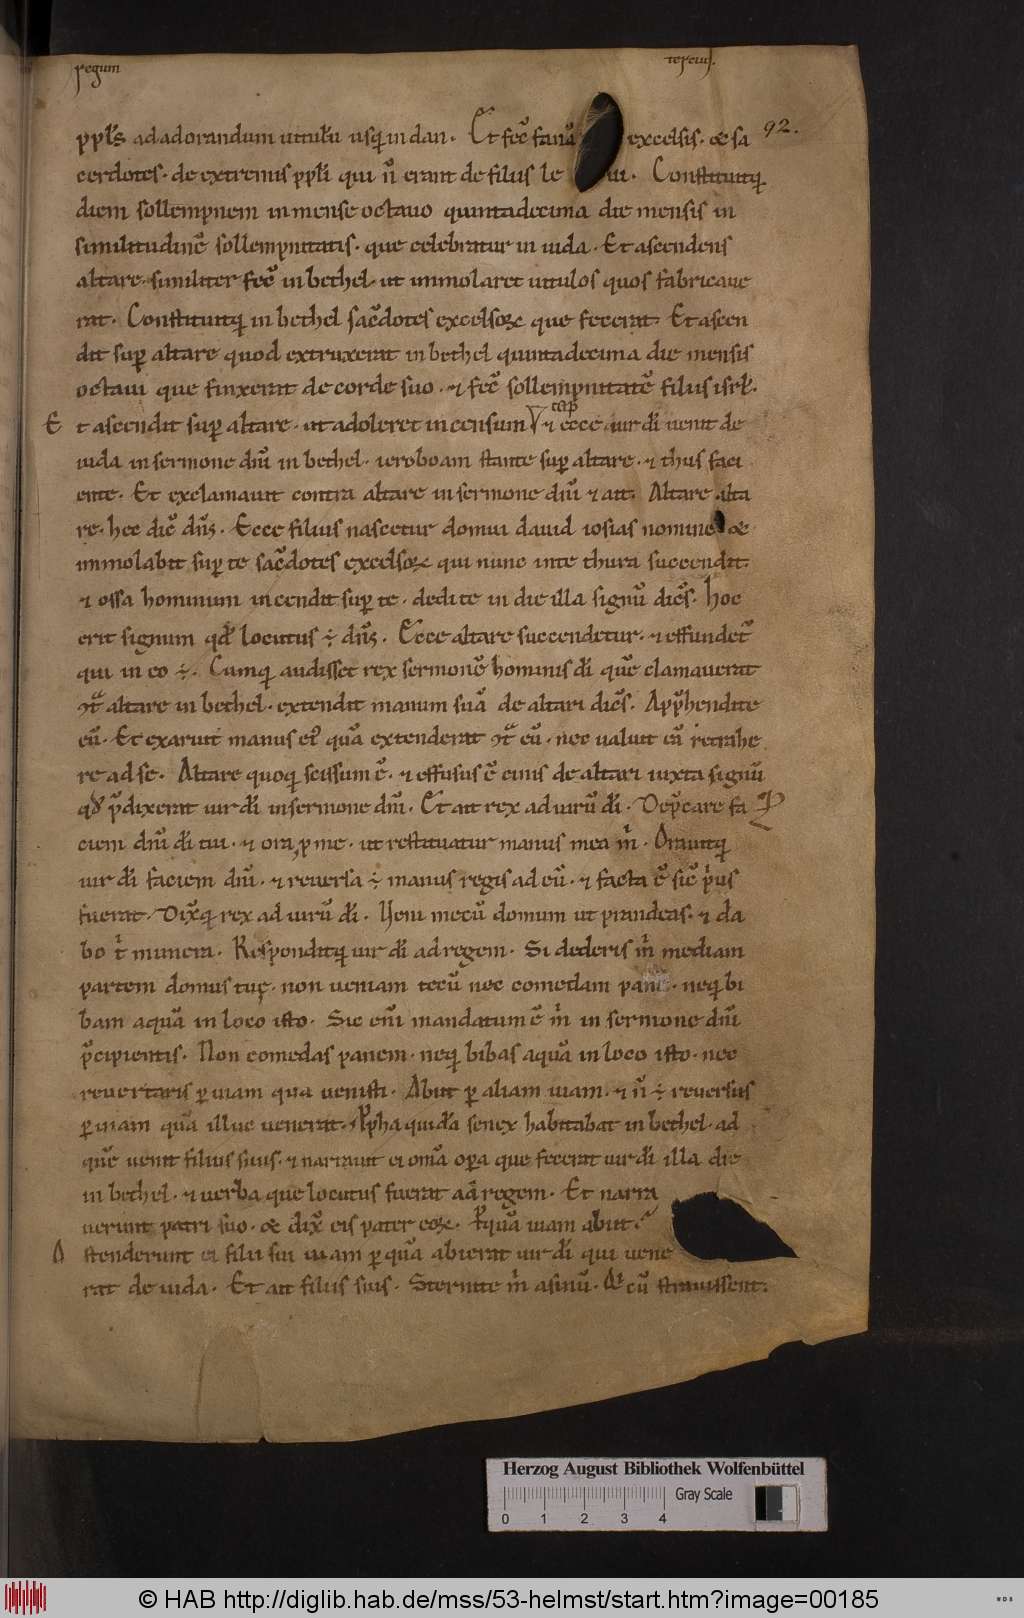 regum
tercius.
92.
ppl's ad adorandum uitulu usq; in dan. Et fec̄ fanū excelsis. & sa
cerdotes. de extremis ppli qui n̄ erant de filiis le ui. Constituitq;
diem sollempnem in mense octauo quintadecima die mensis in
similitudinē sollempnitatis. que celebratur in iuda. Et ascendens
altare. similiter fec̄ in bethel. ut immolaret uitulos quos fabricaue
rat. Constituitq; in bethel sac̄dotes excelsoꝝ que fecerat. Et ascen
dit sup altare quod extruxerat in bethel quintadecima die mensis
octaui que finxerat de corde suo. ⁊ fec̄ sollempnitatē filiis isrl.
cap
E t ascendit sup altare. ut adoleret incensum ⁊ ecce uir dī uenit de
iuda in sermone dnī in bethel. ieroboam stante sup altare. ⁊ thus faci
ente. Et exclamauit contra altare in sermone dnī ⁊ ait. Altare alta
re. hec dic̄ dn̄s. Ecce filius nascetur domui dauid iosias nomine. &
immolabit sup te sac̄dotes excelsoꝝ qui nunc in te thura succendit.
⁊ ossa hominum incendit sup te. dedite in die illa signū dicēs. Hoc
erit signum qd locutus ÷ dn̄s. Ecce altare succendetur. ⁊ effundet̄
qui in eo ÷. Cumq; audisset rex sermonē hominis dī quē clamauerat
ↄt̄ altare in bethel. extendit manum suā de altari dicēs. App̄hendite
eū. Et exaruit manus ei' quā extenderat ↄt̄ eū. nec ualuit eā retrahe
re ad se. Altare quoq; scissum ē. ⁊ effusus ē cinis de altari iuxta signū
qd p̄dixerat uir dī in sermone dnī. Et ait rex ad uirū dī. Dep̄care fa
ciem dnī dī tui. ⁊ ora p me. ut restituatur manus mea m̄. Orauitq;
uir dī faciem dnī. ⁊ reuersa ÷ manus regis ad eū. ⁊ facta ē sic̄ p'us
fuerat. Dix̄q; rex ad uirū dī. Veni mecū domum ut prandeas. ⁊ da
bo t' munera. Responditq; uir dī ad regem. Si dederis m' mediam
partem domus tuę. non ueniam tecū nec comedam panē. neq; bi
bam aquā in loco isto. Sic eni mandatum ē m' in sermone dnī
p̄cipientis. Non comedas panem. neq; bibas aquā in loco isto. nec
reuertaris p uiam qua uenisti. Abiit p aliam uiam. ⁊ n̄ ÷ reuersus
p uiam quā illuc uenerat. Ppha quidā senex habitabat in bethel. ad
quē uenit filius suus. ⁊ narrauit ei omā opa que fecerat uir dī illa die
in bethel. ⁊ uerba que locutus fuerat ad regem. Et narra
uerunt patri suo. & dix̄ eis pater eoꝝ. P quā uiam abiit.
O stenderunt ei filii sui uiam p quā abierat uir dī qui uene
rat de iuda. Et ait filiis suis. Sternite m' asinū. Qi cū strauissent.
Herzog August Bibliothek Wolfenbüttel
Gray Scale
0 1 2 3 4
© HAB http://diglib.hab.de/mss/53-helmst/start.htm?image=00185